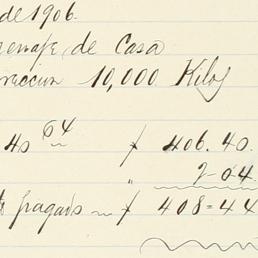 de 1906.
menaje de Casa
reccion 10,000 Kilos
40 64 f 406.40.
" 2-04
pagado f 408=44